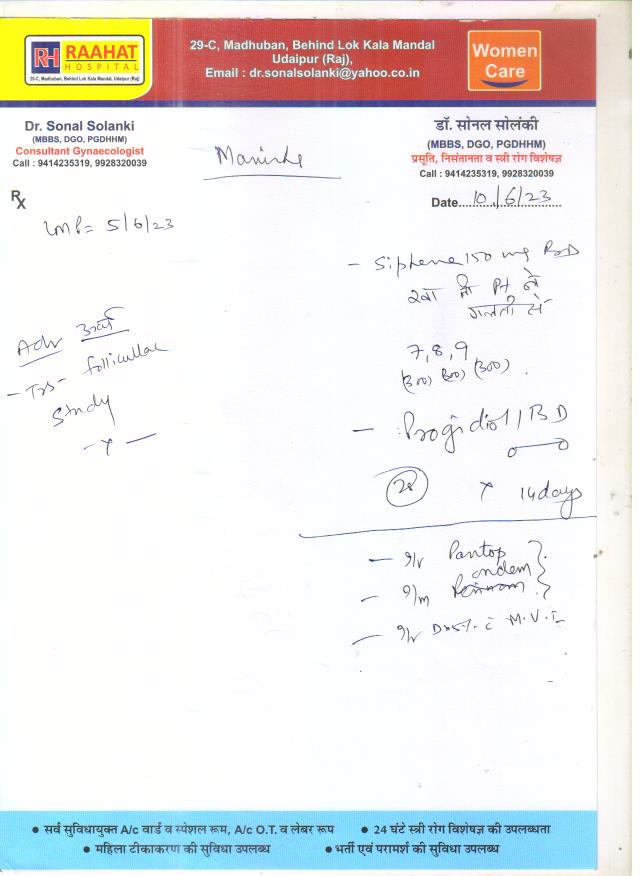 RH RAAHAT
HOSPITAL
29-C, Madhuban, Behind Lok Kala Mandal, Udaipur (Raj)
29-C, Madhuban, Behind Lok Kala Mandal
Udaipur (Raj),
Email : dr.sonalsolanki@yahoo.co.in
Women
Care
Dr. Sonal Solanki
(MBBS, DGO, PGDHHM)
Consultant Gynaecologist
Call : 9414235319, 9928320039
डॉ. सोनल सोलंकी
(MBBS, DGO, PGDHHM)
प्रसूति, निसंतानता व स्त्री रोग विशेषज्ञ
Call : 9414235319, 9928320039
Date 10/6/23
Rx
LMP = 5/6/23
- Siphene 150 mg BD
गलती से
7, 8, 9
(300) (300) (300)
Adv
- TVS - follicular
study
- x -
- Progidiol 1 BD
(28) x 14 days
- I/V Pantop
- I/M
- I/V D×5% c M.V.I-
• सर्व सुविधायुक्त A/c वार्ड व स्पेशल रूम, A/c O.T. व लेबर रूप • 24 घंटे स्त्री रोग विशेषज्ञ की उपलब्धता
• महिला टीकाकरण की सुविधा उपलब्ध • भर्ती एवं परामर्श की सुविधा उपलब्ध